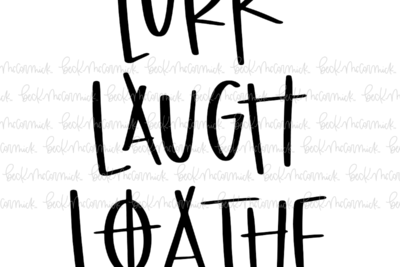 LURK
LAUGH
LOATHE